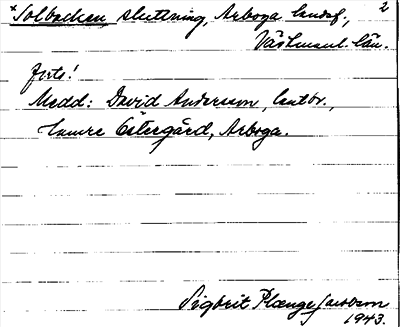 *Solbacken, sluttning, Arboga landsf., 2
Västmanl. län.
fots!
Medd: David Andersson, lantbr.,
Hamre Östergård, Arboga.
Sigbrit Plænge Jacobson
1943.